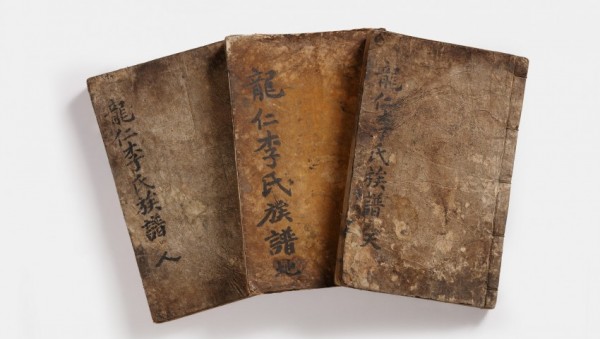 龍仁李氏族譜 天
龍仁李氏族譜 地
龍仁李氏族譜 人